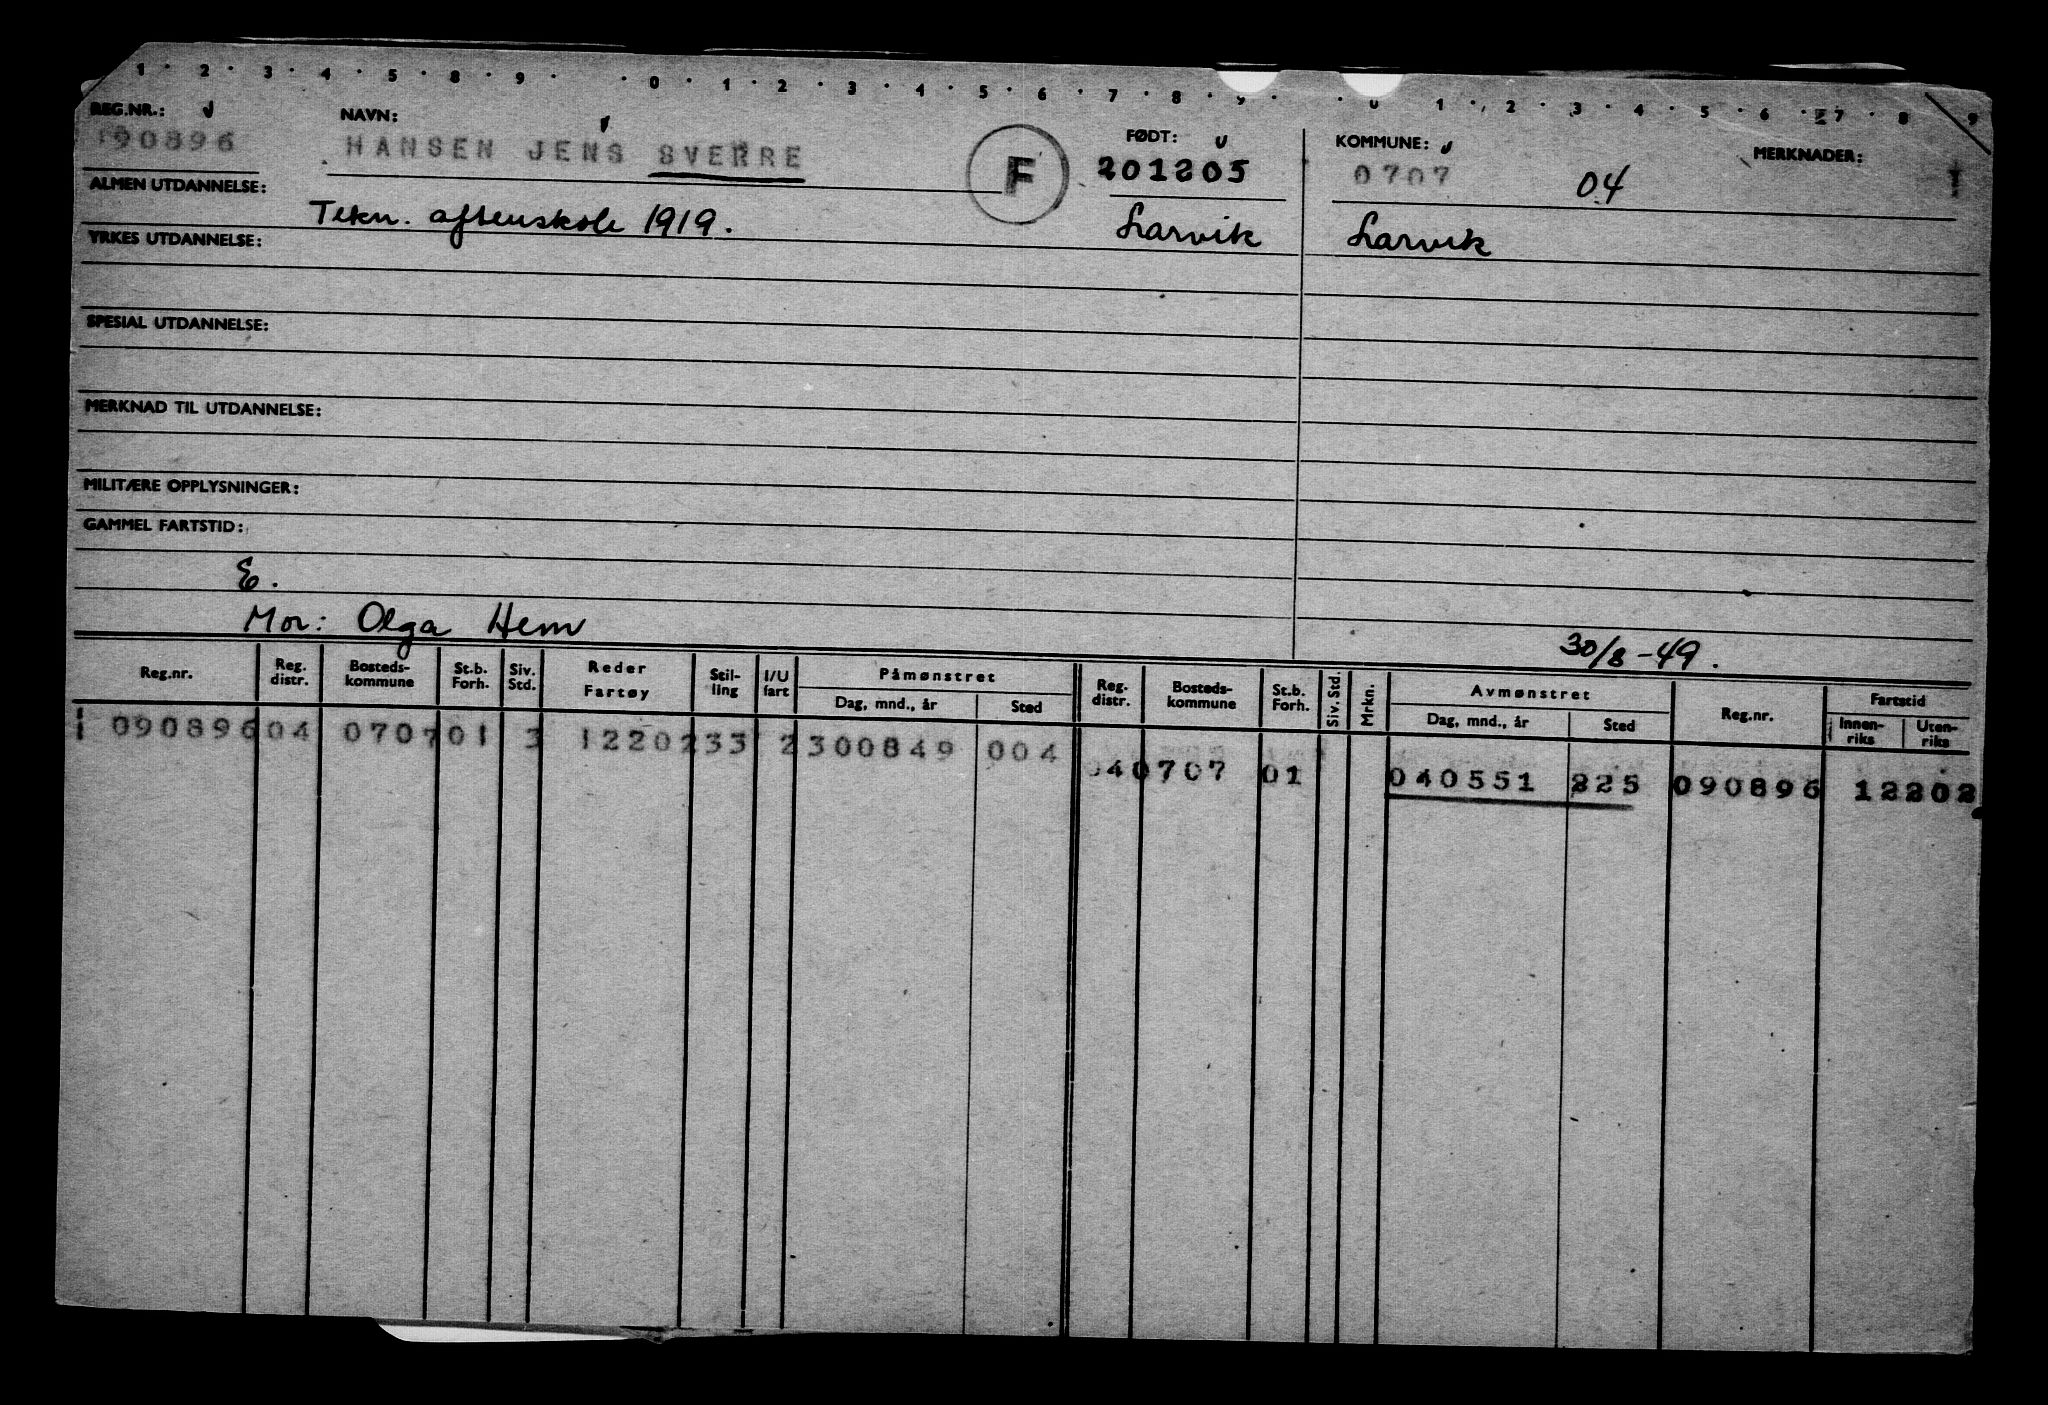 1 · 2 · 3 · 4 · 5 · 8 · 9 · · 0 · 1 · 2 · 3 · 4 · 5 · 6 · 7 · 8 · 9 · · 0 1 · 2 · 3 · 4 · 5 · 6 · 7 · 8 · 9
REG.NR.: NAVN: FØDT: KOMMUNE: MERKNADER:
190896 HANSEN JENS SVERRE F 201205 0707 04
ALMEN UTDANNELSE: Tekn. aftenskole 1919. Larvik Larvik
YRKES UTDANNELSE:
SPESIAL UTDANNELSE:
MERKNAD TIL UTDANNELSE:
MILITÆRE OPPLYSNINGER:
GAMMEL FARTSTID:
E.
Mor: Olga Hem
30/8-49.
Reg.nr. Reg. distr. Bosteds-kommune St.b. Forh. Siv. Std. Reder Fartøy Stil-ling I/U fart Påmønstret Dag, mnd., år Sted Reg. distr. Bosteds-kommune St.b. Forh. Siv. Std. Mrkn. Avmønstret Dag, mnd., år Sted Reg.nr. Fartstid Innen-riks Uten-riks
1 090896 04 0707 01 3 12202 33 2 300849 004
04 0707 01 040551 225 090896 12202